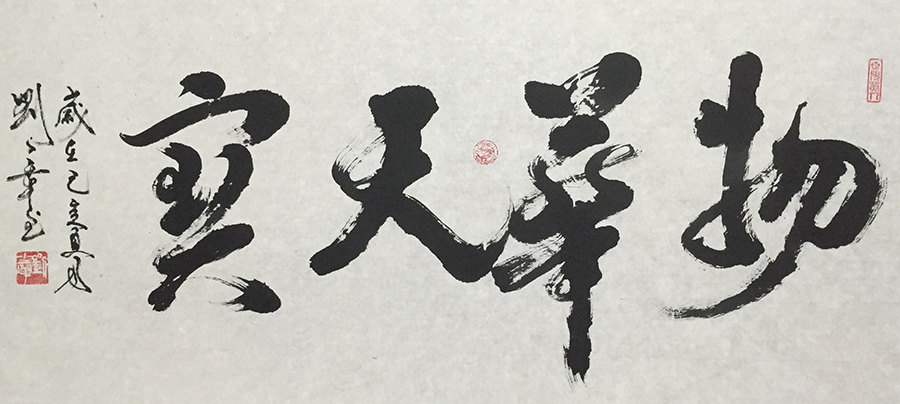 物華天寶
歲在己亥夏月
劉之章書